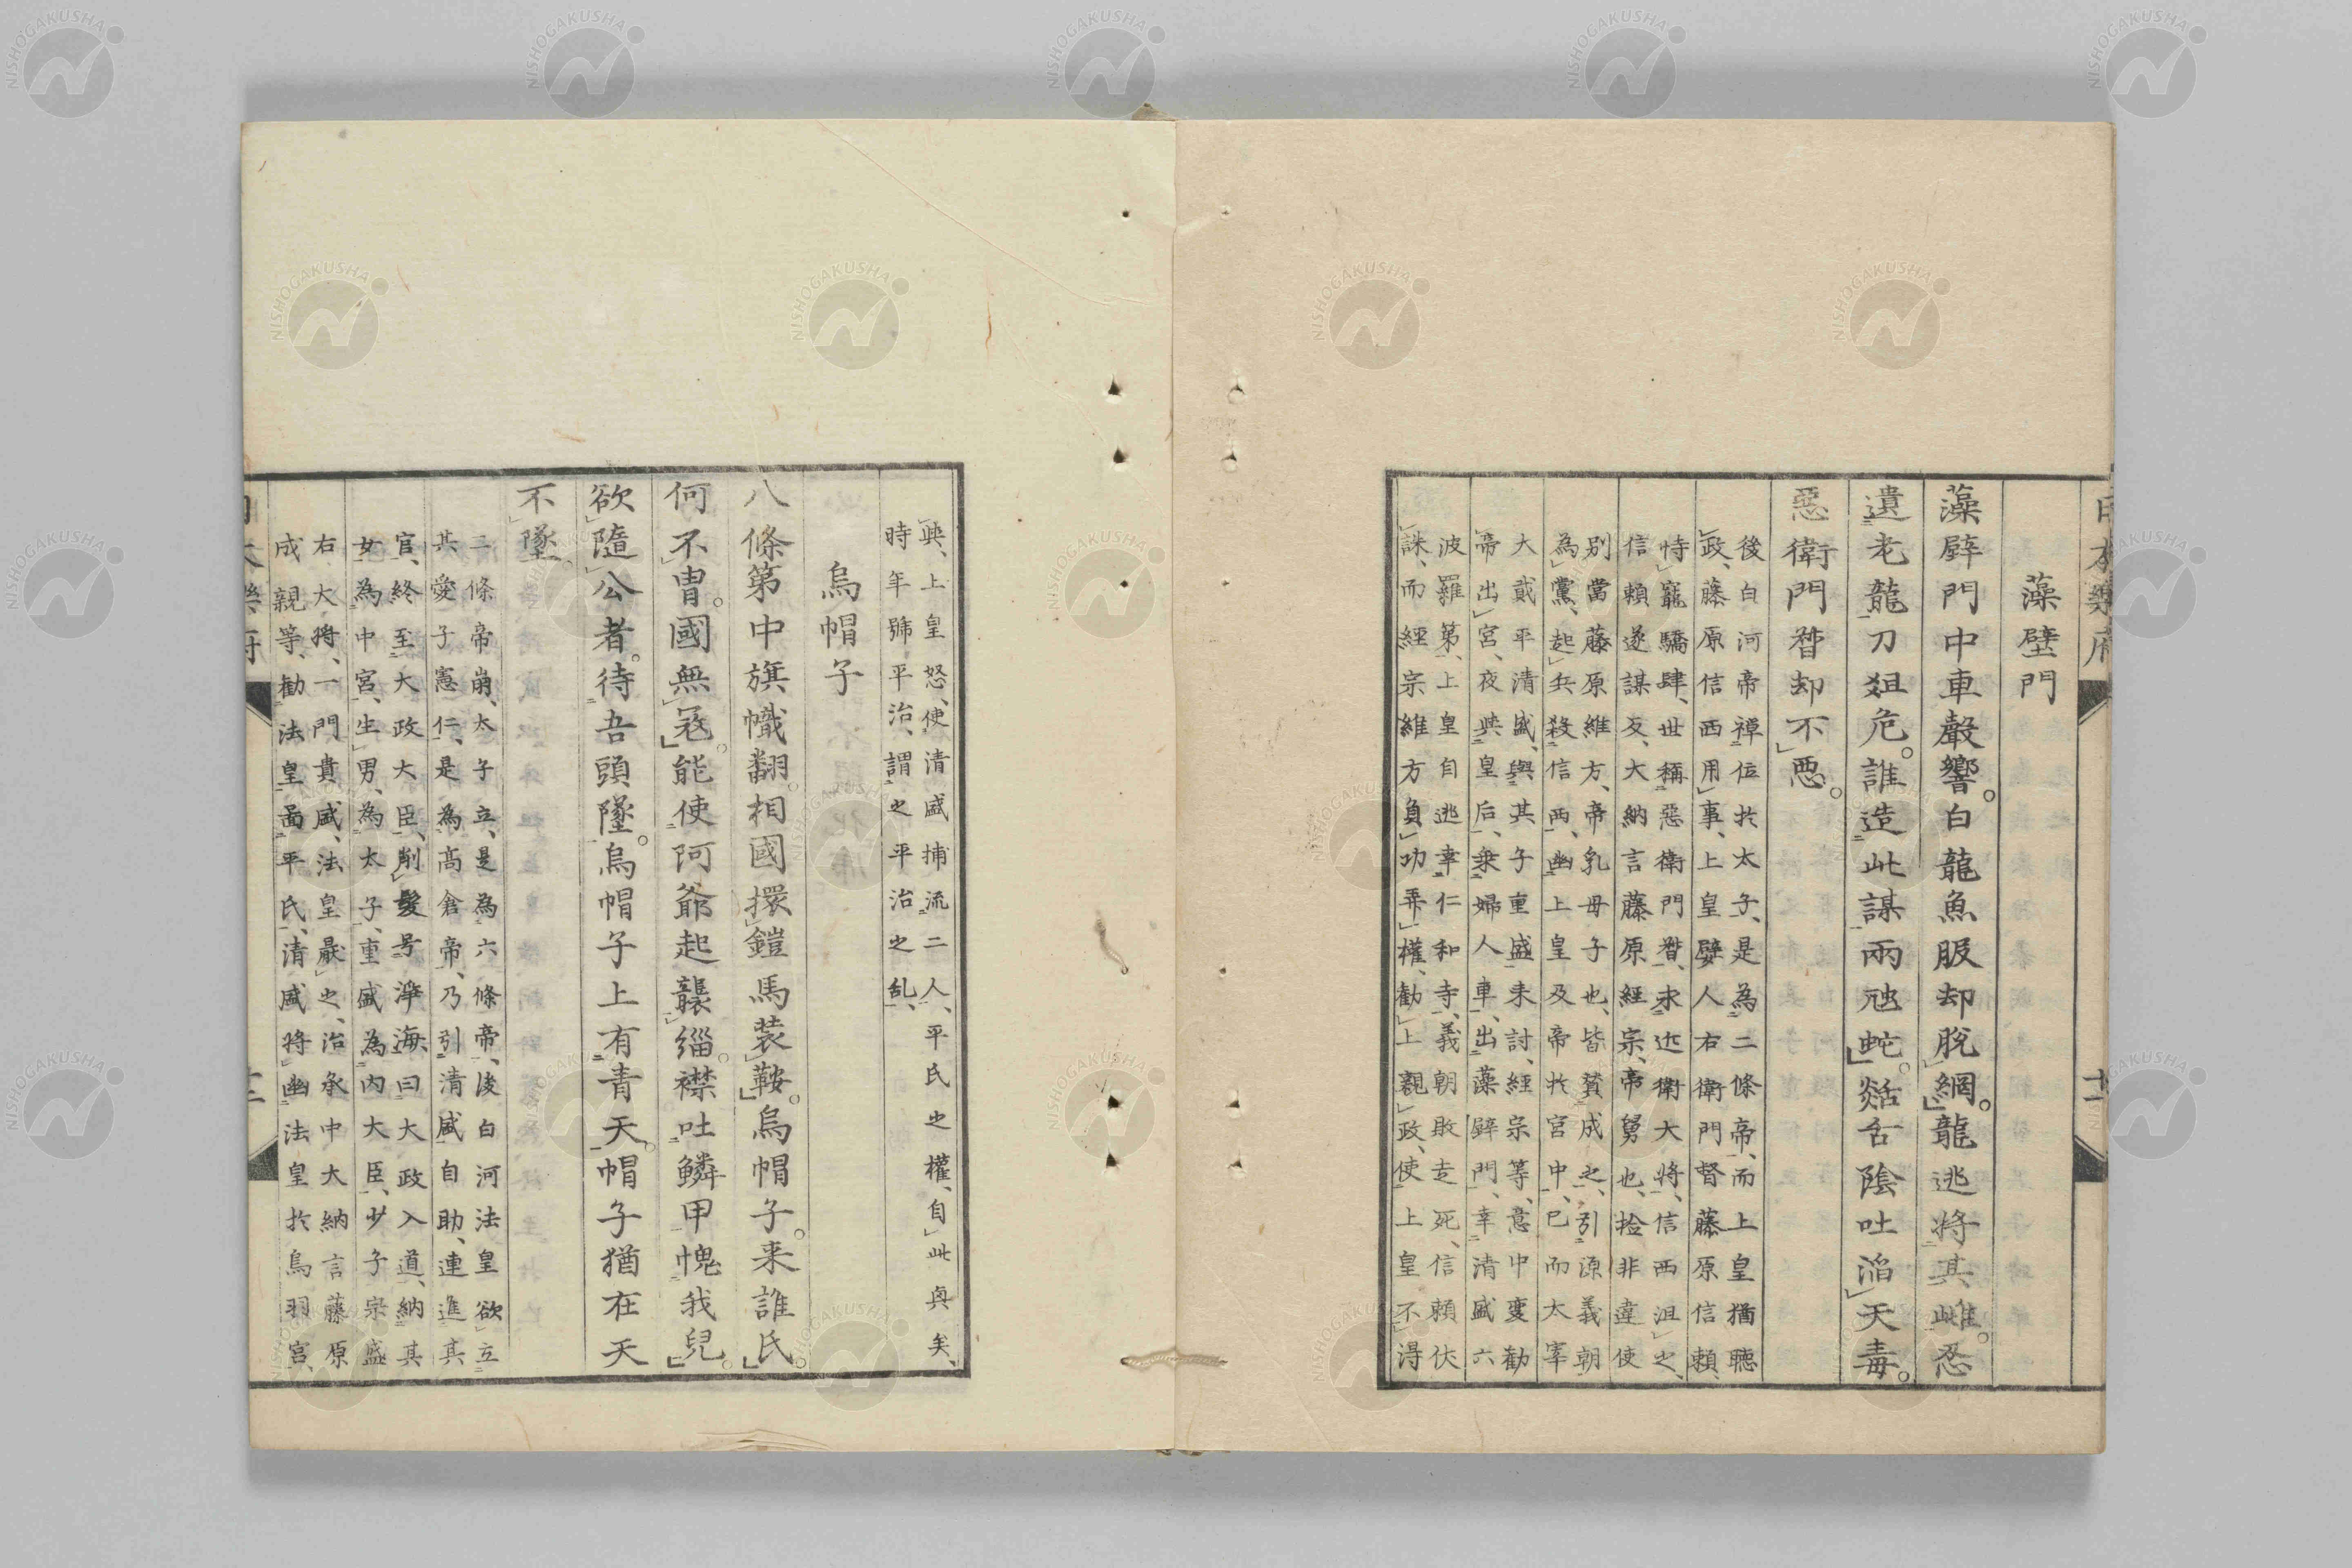 日本樂府
藻壁門
藻壁門中車聲響。白龍魚服却脫網。龍逃將其雌。忍
遺老龍刀俎危。誰造此謀兩虺蛇。燄舌陰吐滔天毒。
惡衛門督却不惡。
後白河帝禪位於太子、是為二條帝、而上皇猶聽
政、藤原信西用事、上皇嬖人右衛門督藤原信頼、
恃寵驕肆、世稱惡衛門督、求近衛大將、信西沮之、
信頼遂謀反、大納言藤原經宗、帝舅也、撿非違使
別當藤原維方、帝乳母子也、皆賛成之、引源義朝
為黨、起兵殺信西、幽上皇及帝於宮中、已而太宰
大貳平清盛、與其子重盛來討、經宗等、意中變勸
帝出宮、夜與皇后、乗婦人車、出藻壁門、幸清盛六
波羅第、上皇自逃幸仁和寺、義朝敗走死、信頼伏
誅、而經宗維方負功弄權、勸上親政、使上皇不得
與、上皇怒、使清盛捕流二人、平氏之權、自此與矣、
時年號平治、謂之平治之乱、
烏帽子
八條第中旗幟翻。相國擐鎧馬装鞍。烏帽子。来誰氏。
何不冑。國無冦。能使阿爺起襲緇。襟吐鱗甲愧我兒。
欲隨公者。待吾頭墜。烏帽子上有青天。帽子猶在天
不墜。
二條帝崩、太子立、是為六條帝、後白河法皇欲立
其愛子憲仁、是為高倉帝、乃引清盛自助、連進其
官、終至大政大臣、削髮号淨海曰大政入道、納其
女為中宮、生男、為太子、重盛為内大臣、少子宗盛
右大将、一門貴盛、法皇厭之、治承中大納言藤原
成親等、勧法皇啚平氏、清盛将幽法皇於烏羽宮、